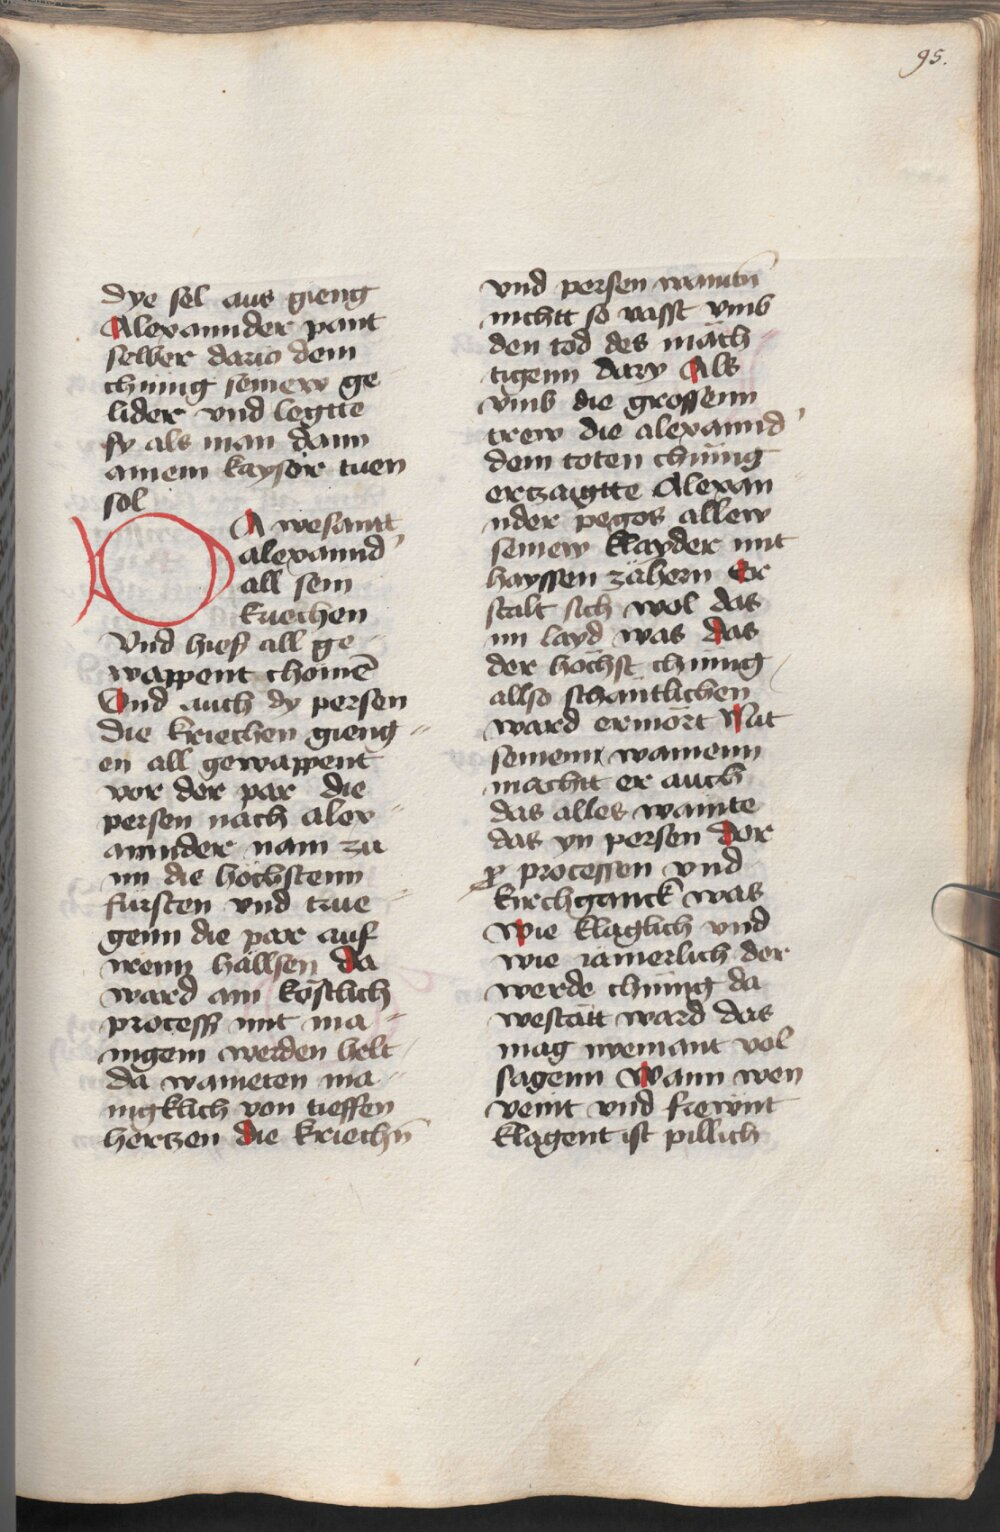 95.
dye sel aus gieng
Alexannder pant
selber dario dem
chunig seinew ge
lider vnd legtte
sy als man dann
ainem kayser tuen
sol
DA wesantt
alexannd'
all sein
kriechen
Vnd hiess all ge
wappent chomē
Vnd auch dy persen
die kriechen gieng=
en all gewappent
vor der par die
persen nach alex=
annder nam zu
im die höchstenn
fürsten vnd true=
genn die par auf
irenn hällsen da
ward ain köstlich
process mit ma=
nigem werden helt
da waineten ma=
nigklich von tieffen
hertzen die kriechn̄
vnd persen wainten
nichtt so vasst vmb
den tod des mäch=
tigenn dary Als
vmb die grossenn
trew die alexannd'
dem toten chünig
ertzaigtte Alexan
nder pegos allew
seinew klayder mit
hayssen zähern Er
stalt sich wol das
im layd was das
der höchst chunig
allso schantlichen
ward ermört Mit
seinem wainenn
machtt er auch
das alles wainte
das yn persen dor
processen vnd
kirchganck was
wie kläglich vnd
wie iämerlich der
werde chunig da
westätt ward das
mag nyemant vol
sagenn Wann wen
veint vnd frewnt
klagent ist pillich